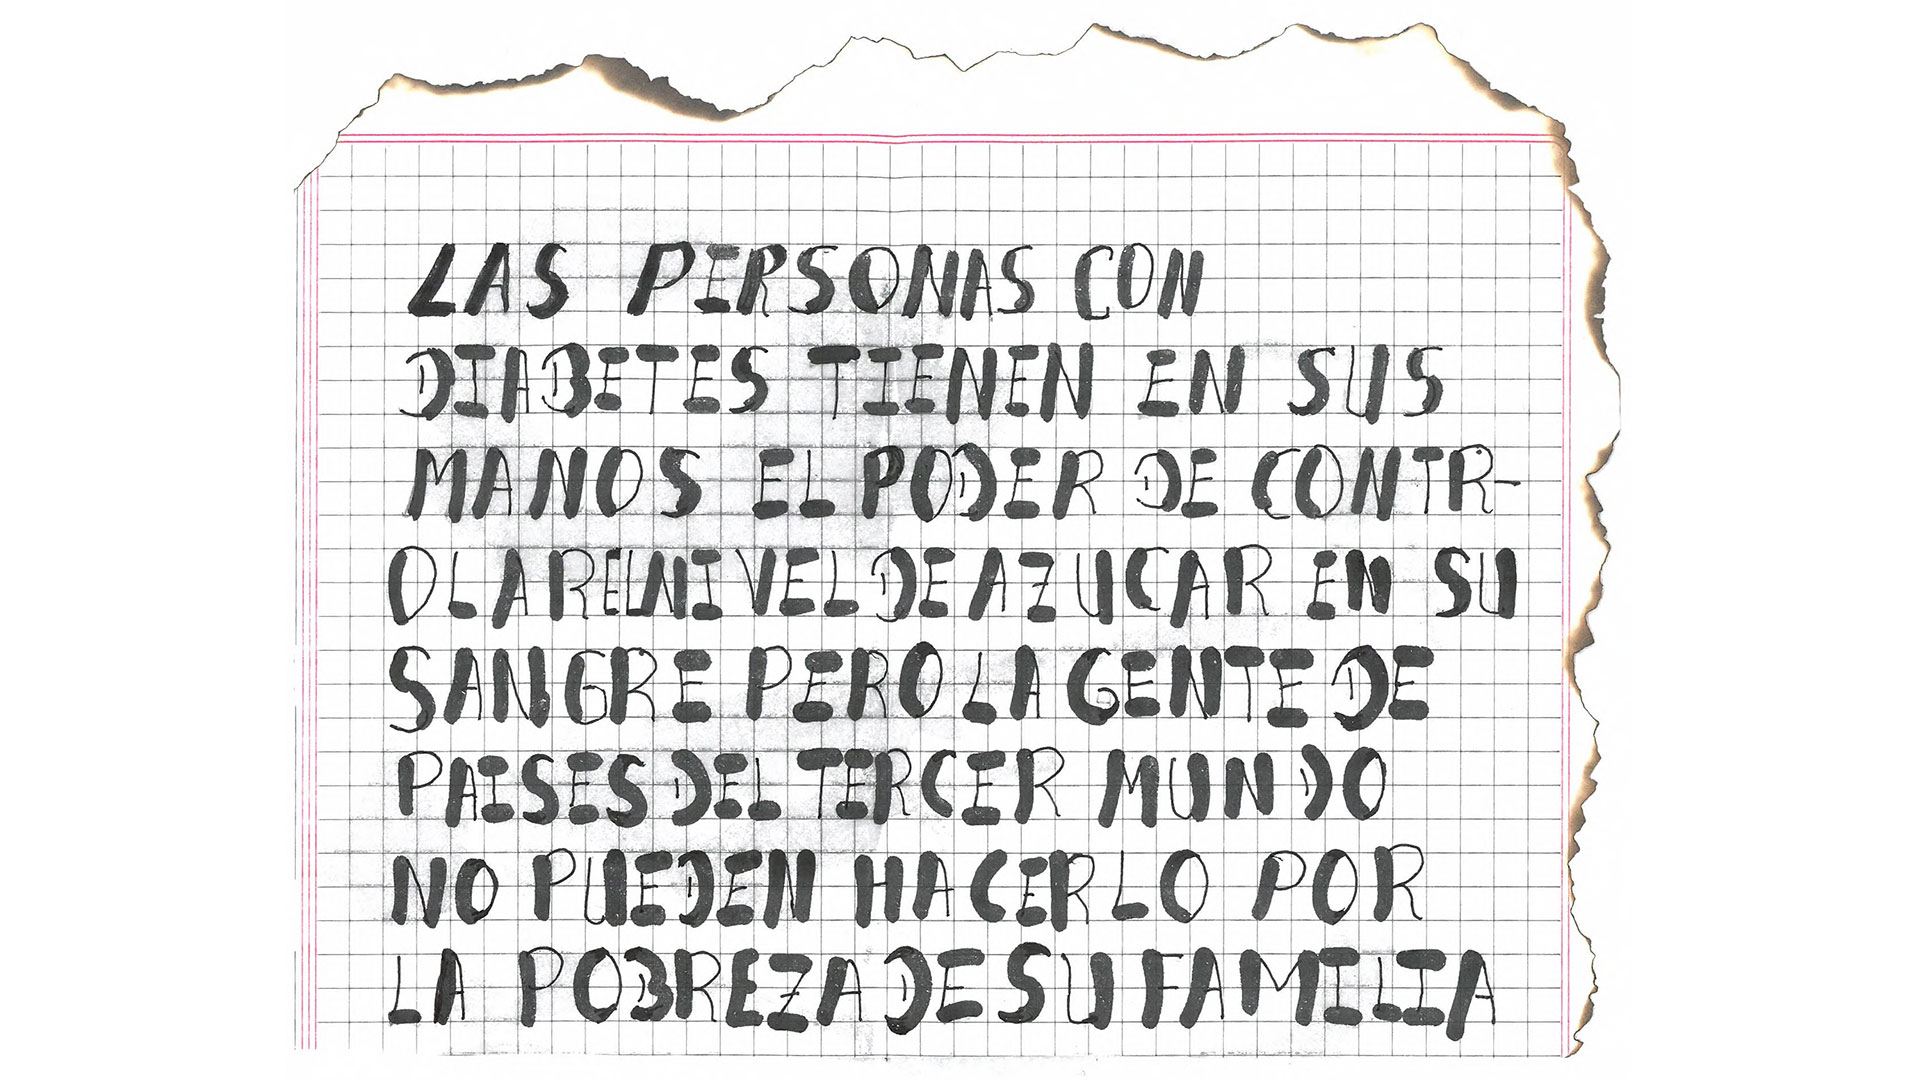 LAS PERSONAS CON
DIABETES TIENEN EN SUS
MANOS EL PODER DE CONTR-
OLAR EL NIVEL DE AZUCAR EN SU
SANGRE PERO LA GENTE DE
PAISES DEL TERCER MUNDO
NO PUEDEN HACERLO POR
LA POBREZA DE SU FAMILIA